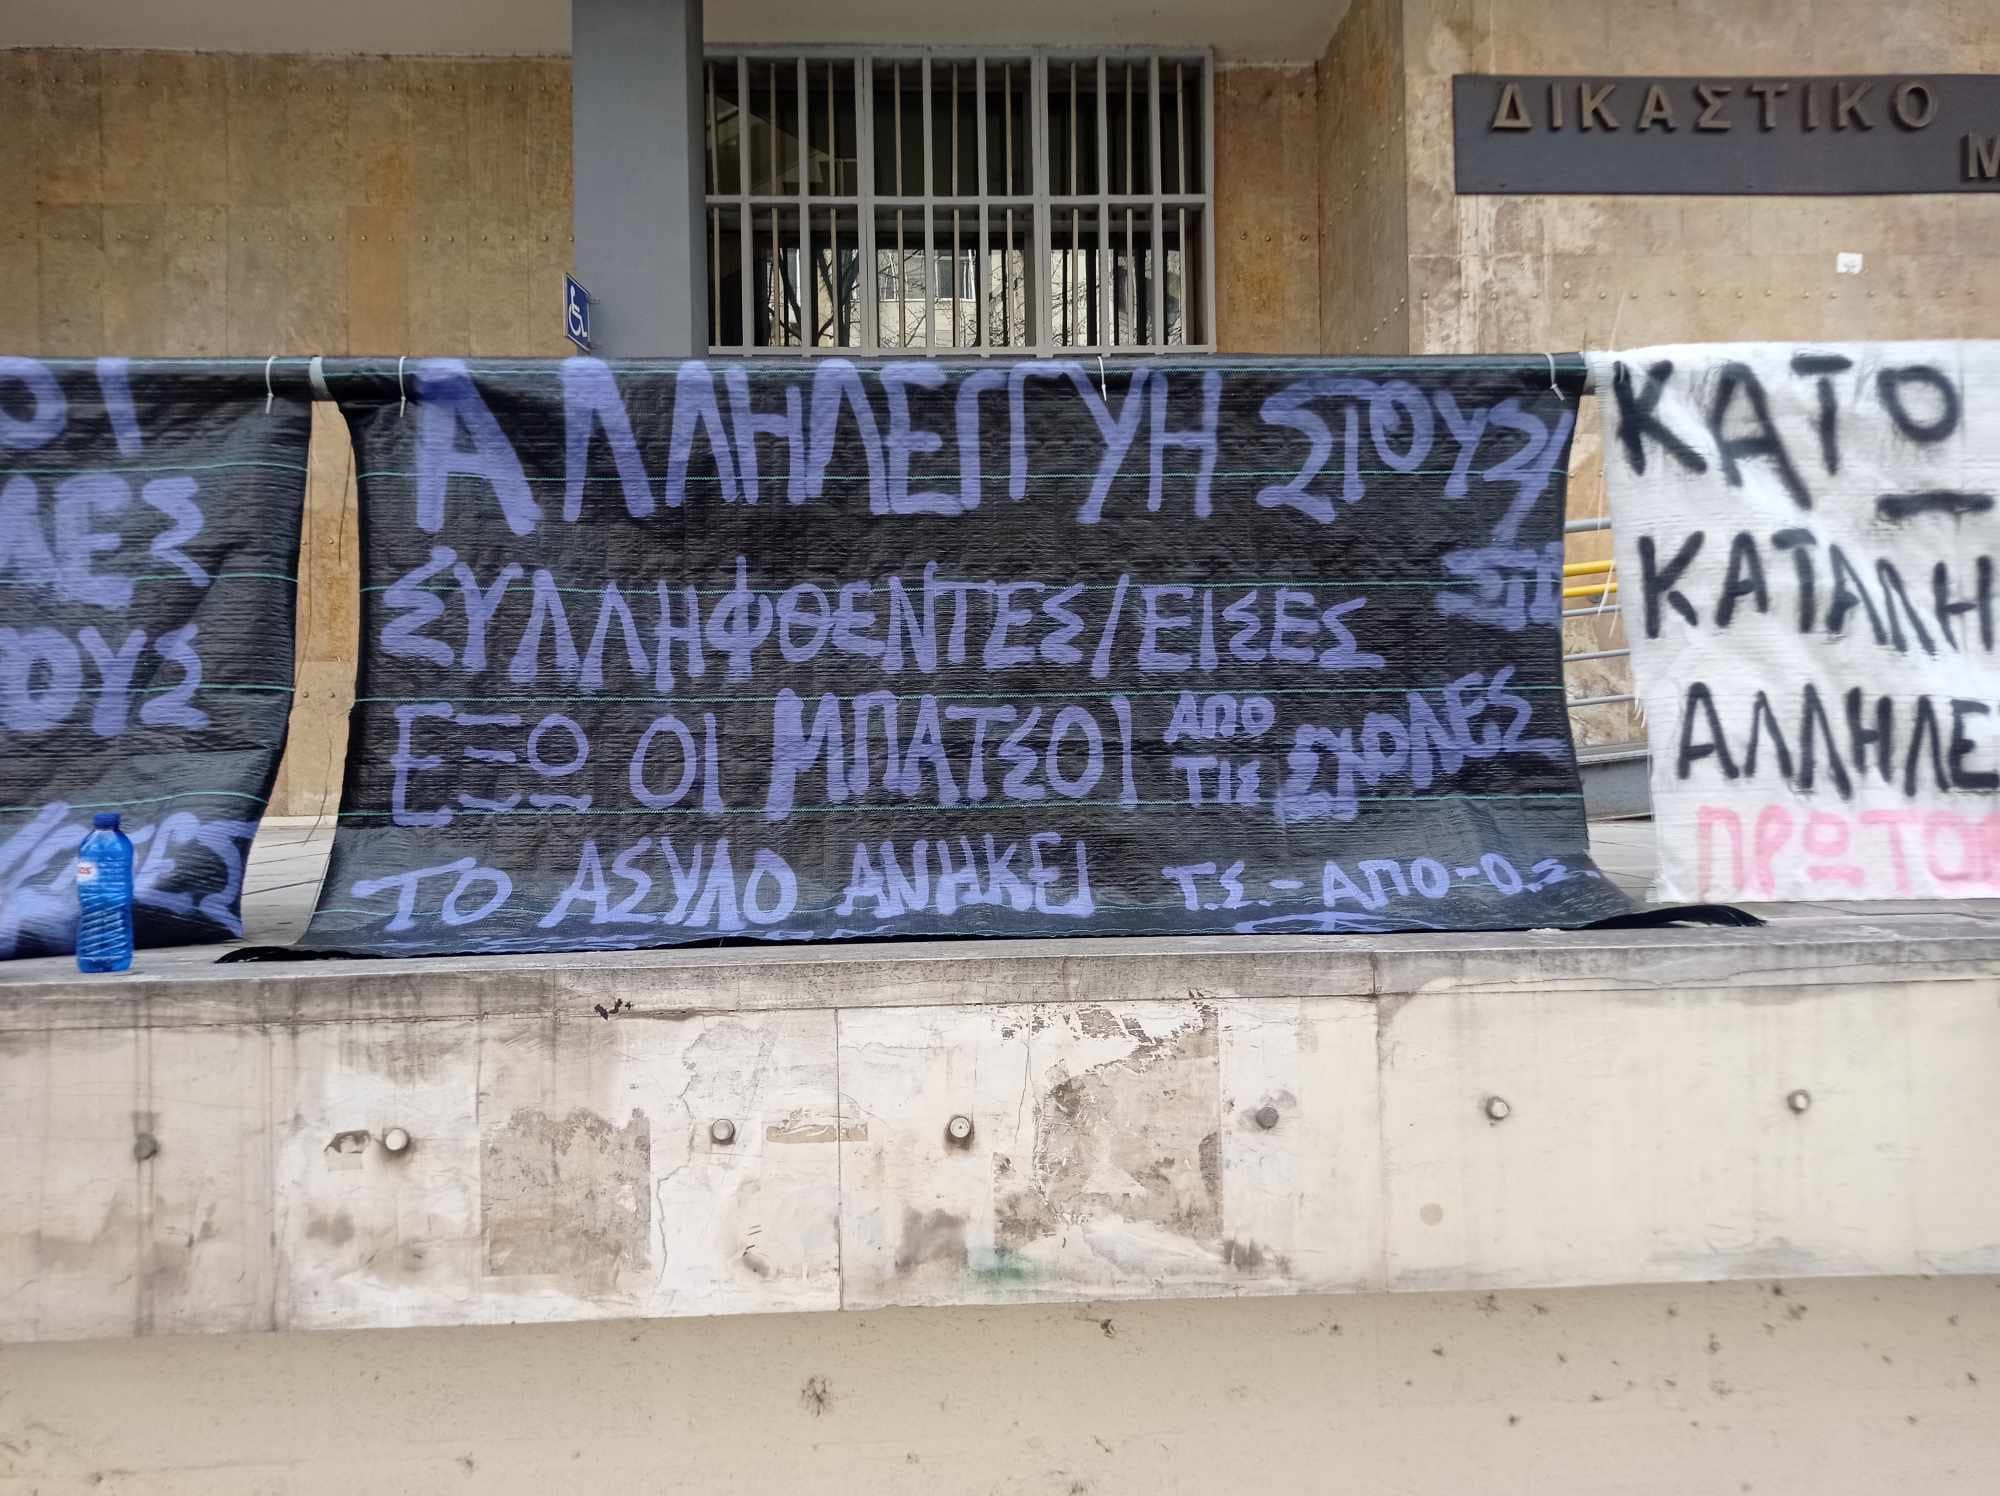 ΔΙΚΑΣΤΙΚΟ
Μ
ΟΙ
ΛΕΣ
ΟΥΣ
ΑΛΛΗΛΕΓΓΥΗ ΣΤΟΥΣ/
ΣΤΙΣ
ΣΥΛΛΗΦΘΕΝΤΕΣ/ΕΙΣΕΣ
ΕΞΩ ΟΙ ΜΠΑΤΣΟΙ ΑΠΟ ΤΙΣ ΣΧΟΛΕΣ
ΤΟ ΑΣΥΛΟ ΑΝΗΚΕΙ Τ.Σ.-ΑΠΟ-Ο.Σ.
ΚΑΤΩ
ΚΑΤΑΛΗ
ΑΛΛΗΛΕ
ΠΡΩΤΟ